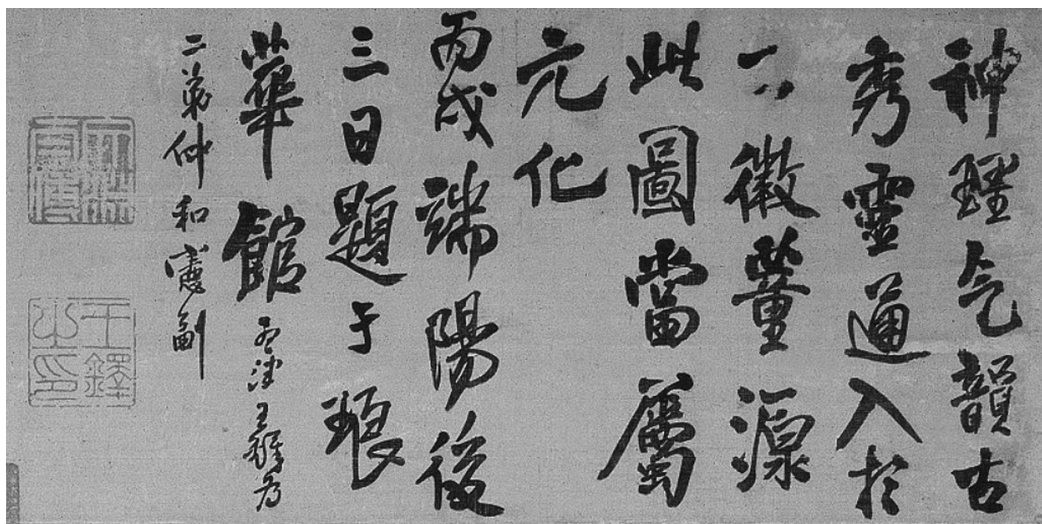 神理气韻古
秀靈通入於
微董源
此圖當屬
元化
丙戌端陽後
三日題于琅
華館 孟津王鐸為
二弟仲和憲副
王鐸之印